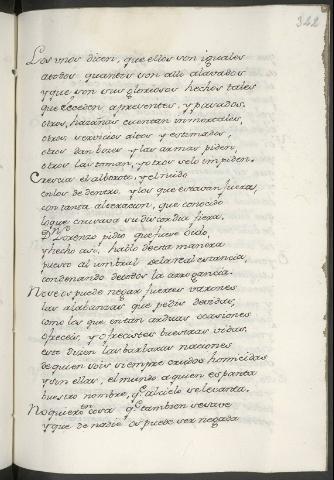 342
Los unos dicen, que ellos son iguales
atodos quantos son alli alavados
y que son sus gloriosos hechos tales
que exceden a presentes, y pasados.
otros, hazañas cuentan inmortales,
otros, servicios altos y estimados,
otros dan voces y las armas piden,
otros las toman, y otros se lo impiden.
Crescia el alboroto, y el ruido
enlos de dentro, y los que estavan fuera,
con tanta alteracion, que conocido
lo que causava su discordia fiera.
Dn. Lorenzo pidio que fuese oido,
y hecho asi, hablo desta manera
puesto al umbral dela tal estancia,
condenando de todos la arrogancia.
No se os puede negar fuertes varones
las alabanzas que pedis devidas,
como los que en tan arduas ocasiones
ofreceis, y ofrecisteis vuestras vidas.
esto dicen las barbaras naciones
de quien sois siempre crudos homicidas
y sin ellas, el mundo a quien espanta
vuestro nombre, qe. al cielo se levanta.
No quiero en cosa qe. tambien se save
y que de nadie os puede ser negada